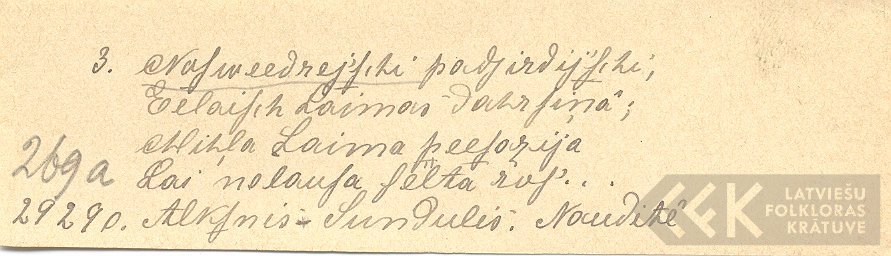 3. Nosweedrejschi padsirdijschi,
Eelaisch Laimas dahrsinâ;
Mihļa Laima peesozija
Lai nolausa selta ros'...
269a
29290. Alksnis-Sundulis. Nauditê
LATVIEŠU
FOLKLORAS
KRĀTUVE